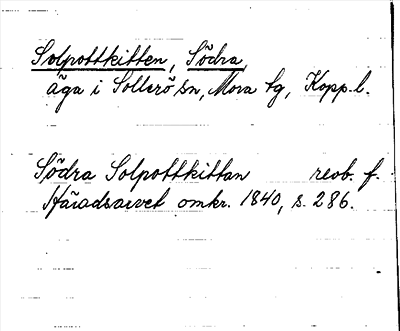 Solpottkitten, Södra,
äga i Sollerö sn, Mora tg, Kopp. l.
Södra Solpottkittan reob. f.
Häradsarvet omkr. 1840, s. 286.